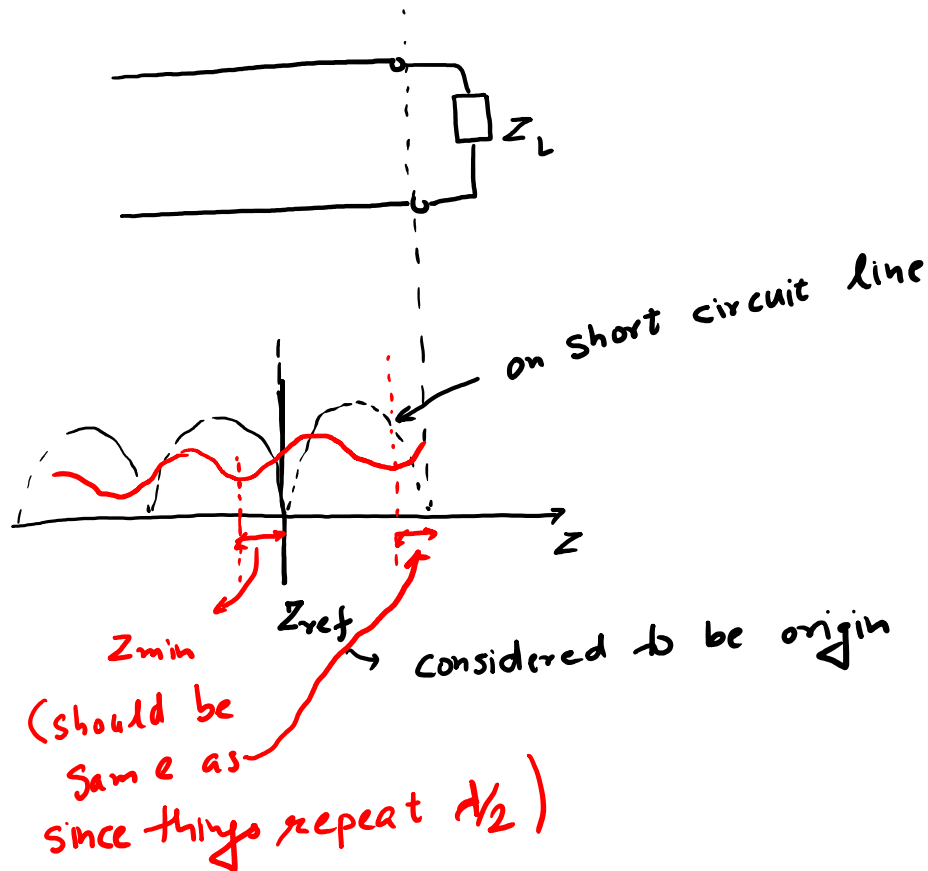 Z_L
on short circuit line
Z
Z_ref
considered to be origin
Z_min
(should be
same as
since things repeat λ/2)